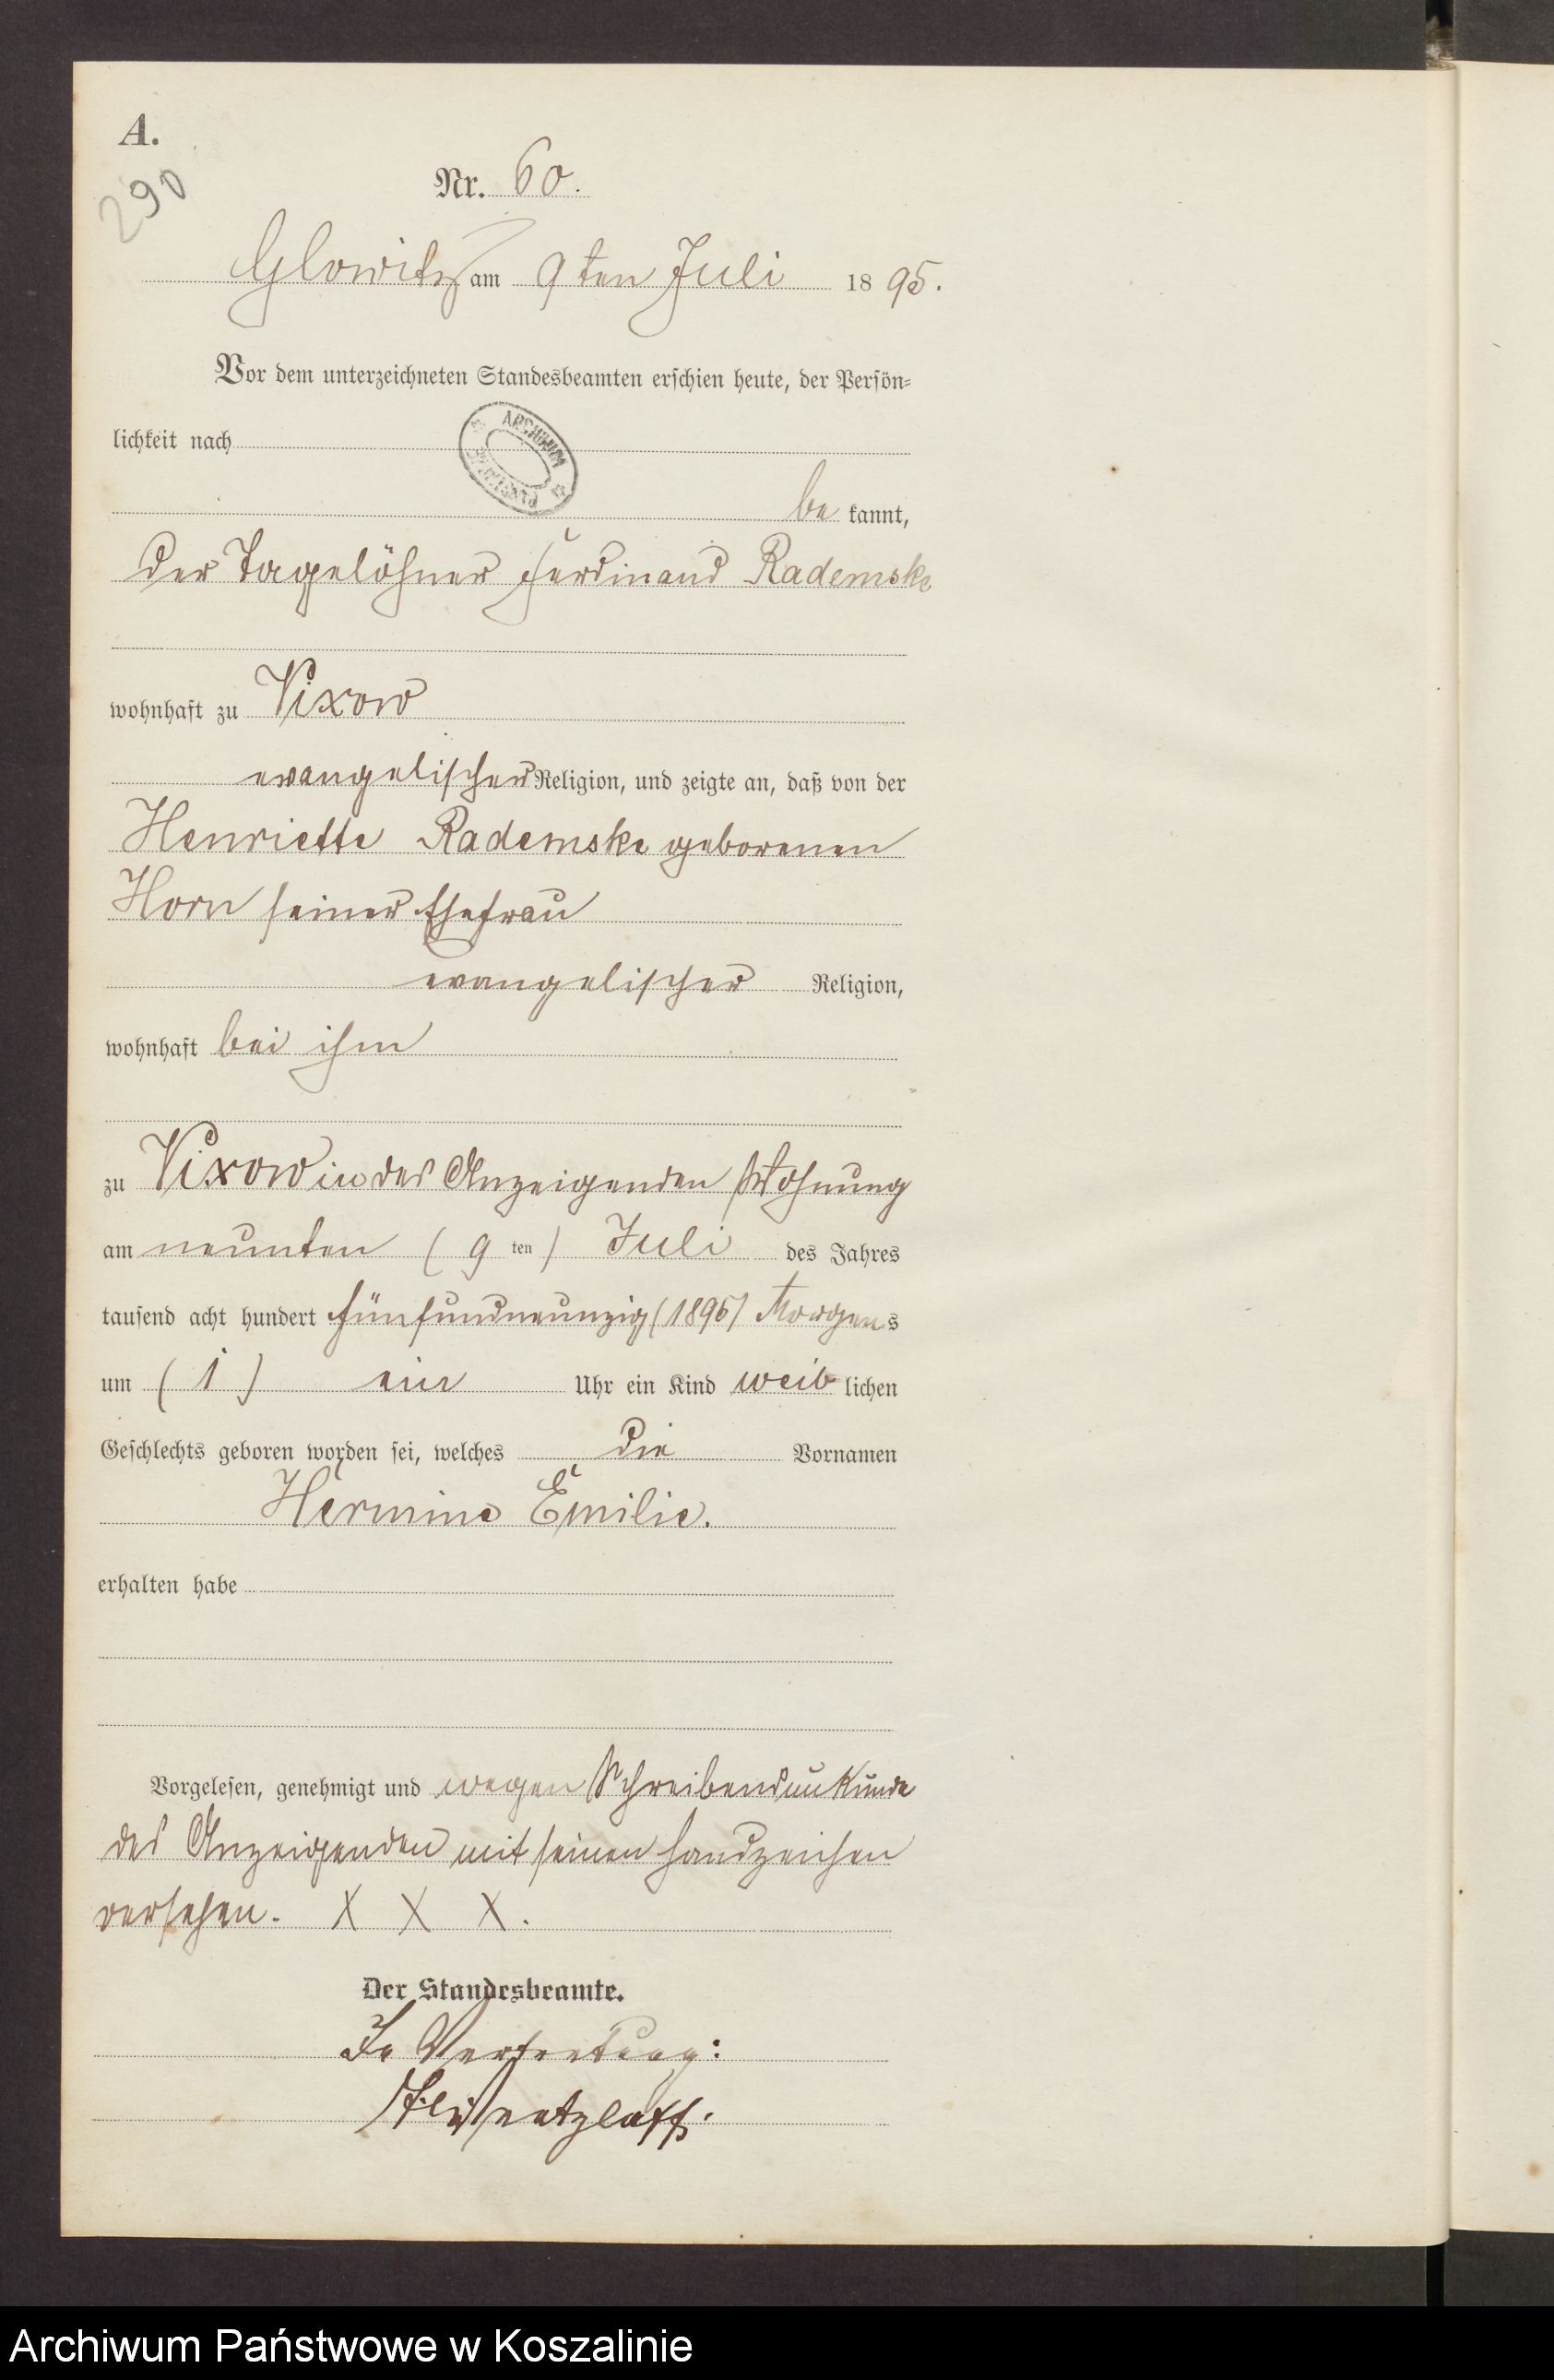 A.
290
Nr. 60.
Glowitz am 9ten Juli 1895.
Vor dem unterzeichneten Standesbeamten erschien heute, der Persön-
lichkeit nach
ARCHIWUM
be kannt,
der Tagelöhner Ferdinand Rademske
wohnhaft zu Vixow
evangelischer Religion, und zeigte an, daß von der
Henriette Rademske geborenen
Horn seiner Ehefrau
evangelischer Religion,
wohnhaft bei ihm
zu Vixow in des Anzeigenden Wohnung
am neunten (9 ten) Juli des Jahres
tausend acht hundert fünfundneunzig (1895) Morgens
um (1) ein Uhr ein Kind weib lichen
Geschlechts geboren worden sei, welches die Vornamen
Hermine Emilie.
erhalten habe
Vorgelesen, genehmigt und wegen Schreibensunkunde
des Anzeigenden mit seinen Handzeichen
versehen. X X X.
Der Standesbeamte.
In Vertretung:
Archiwum Państwowe w Koszalinie